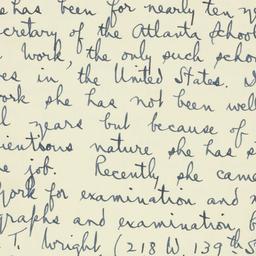 has been for nearly ten
cretary of the Atlanta School
Work, the only such schoo
es in the United States.
ork she has not been well
l years but because of
ientious nature she has s
e job. Recently she came
York for examination and
graphs and examination,
T. Wright (218 W. 139th S